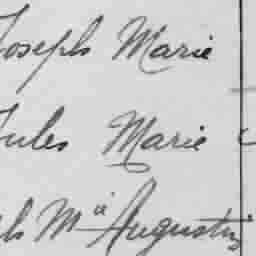 Joseph Marie
Jules Marie
Mia Augustin